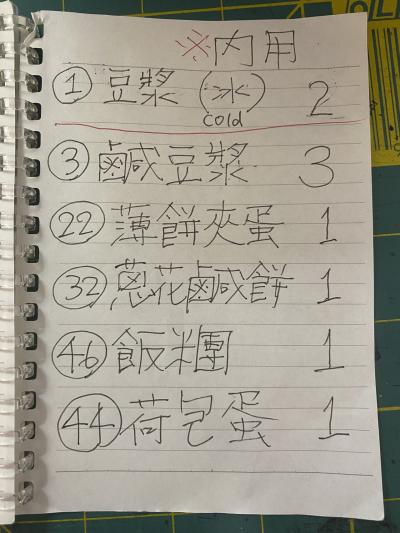 ※内用
① 豆漿 (冰) 2
cold
③ 鹹豆漿 3
㉒ 薄餅夾蛋 1
㉜ 蔥花鹹餅 1
㊻ 飯糰 1
㊹ 荷包蛋 1